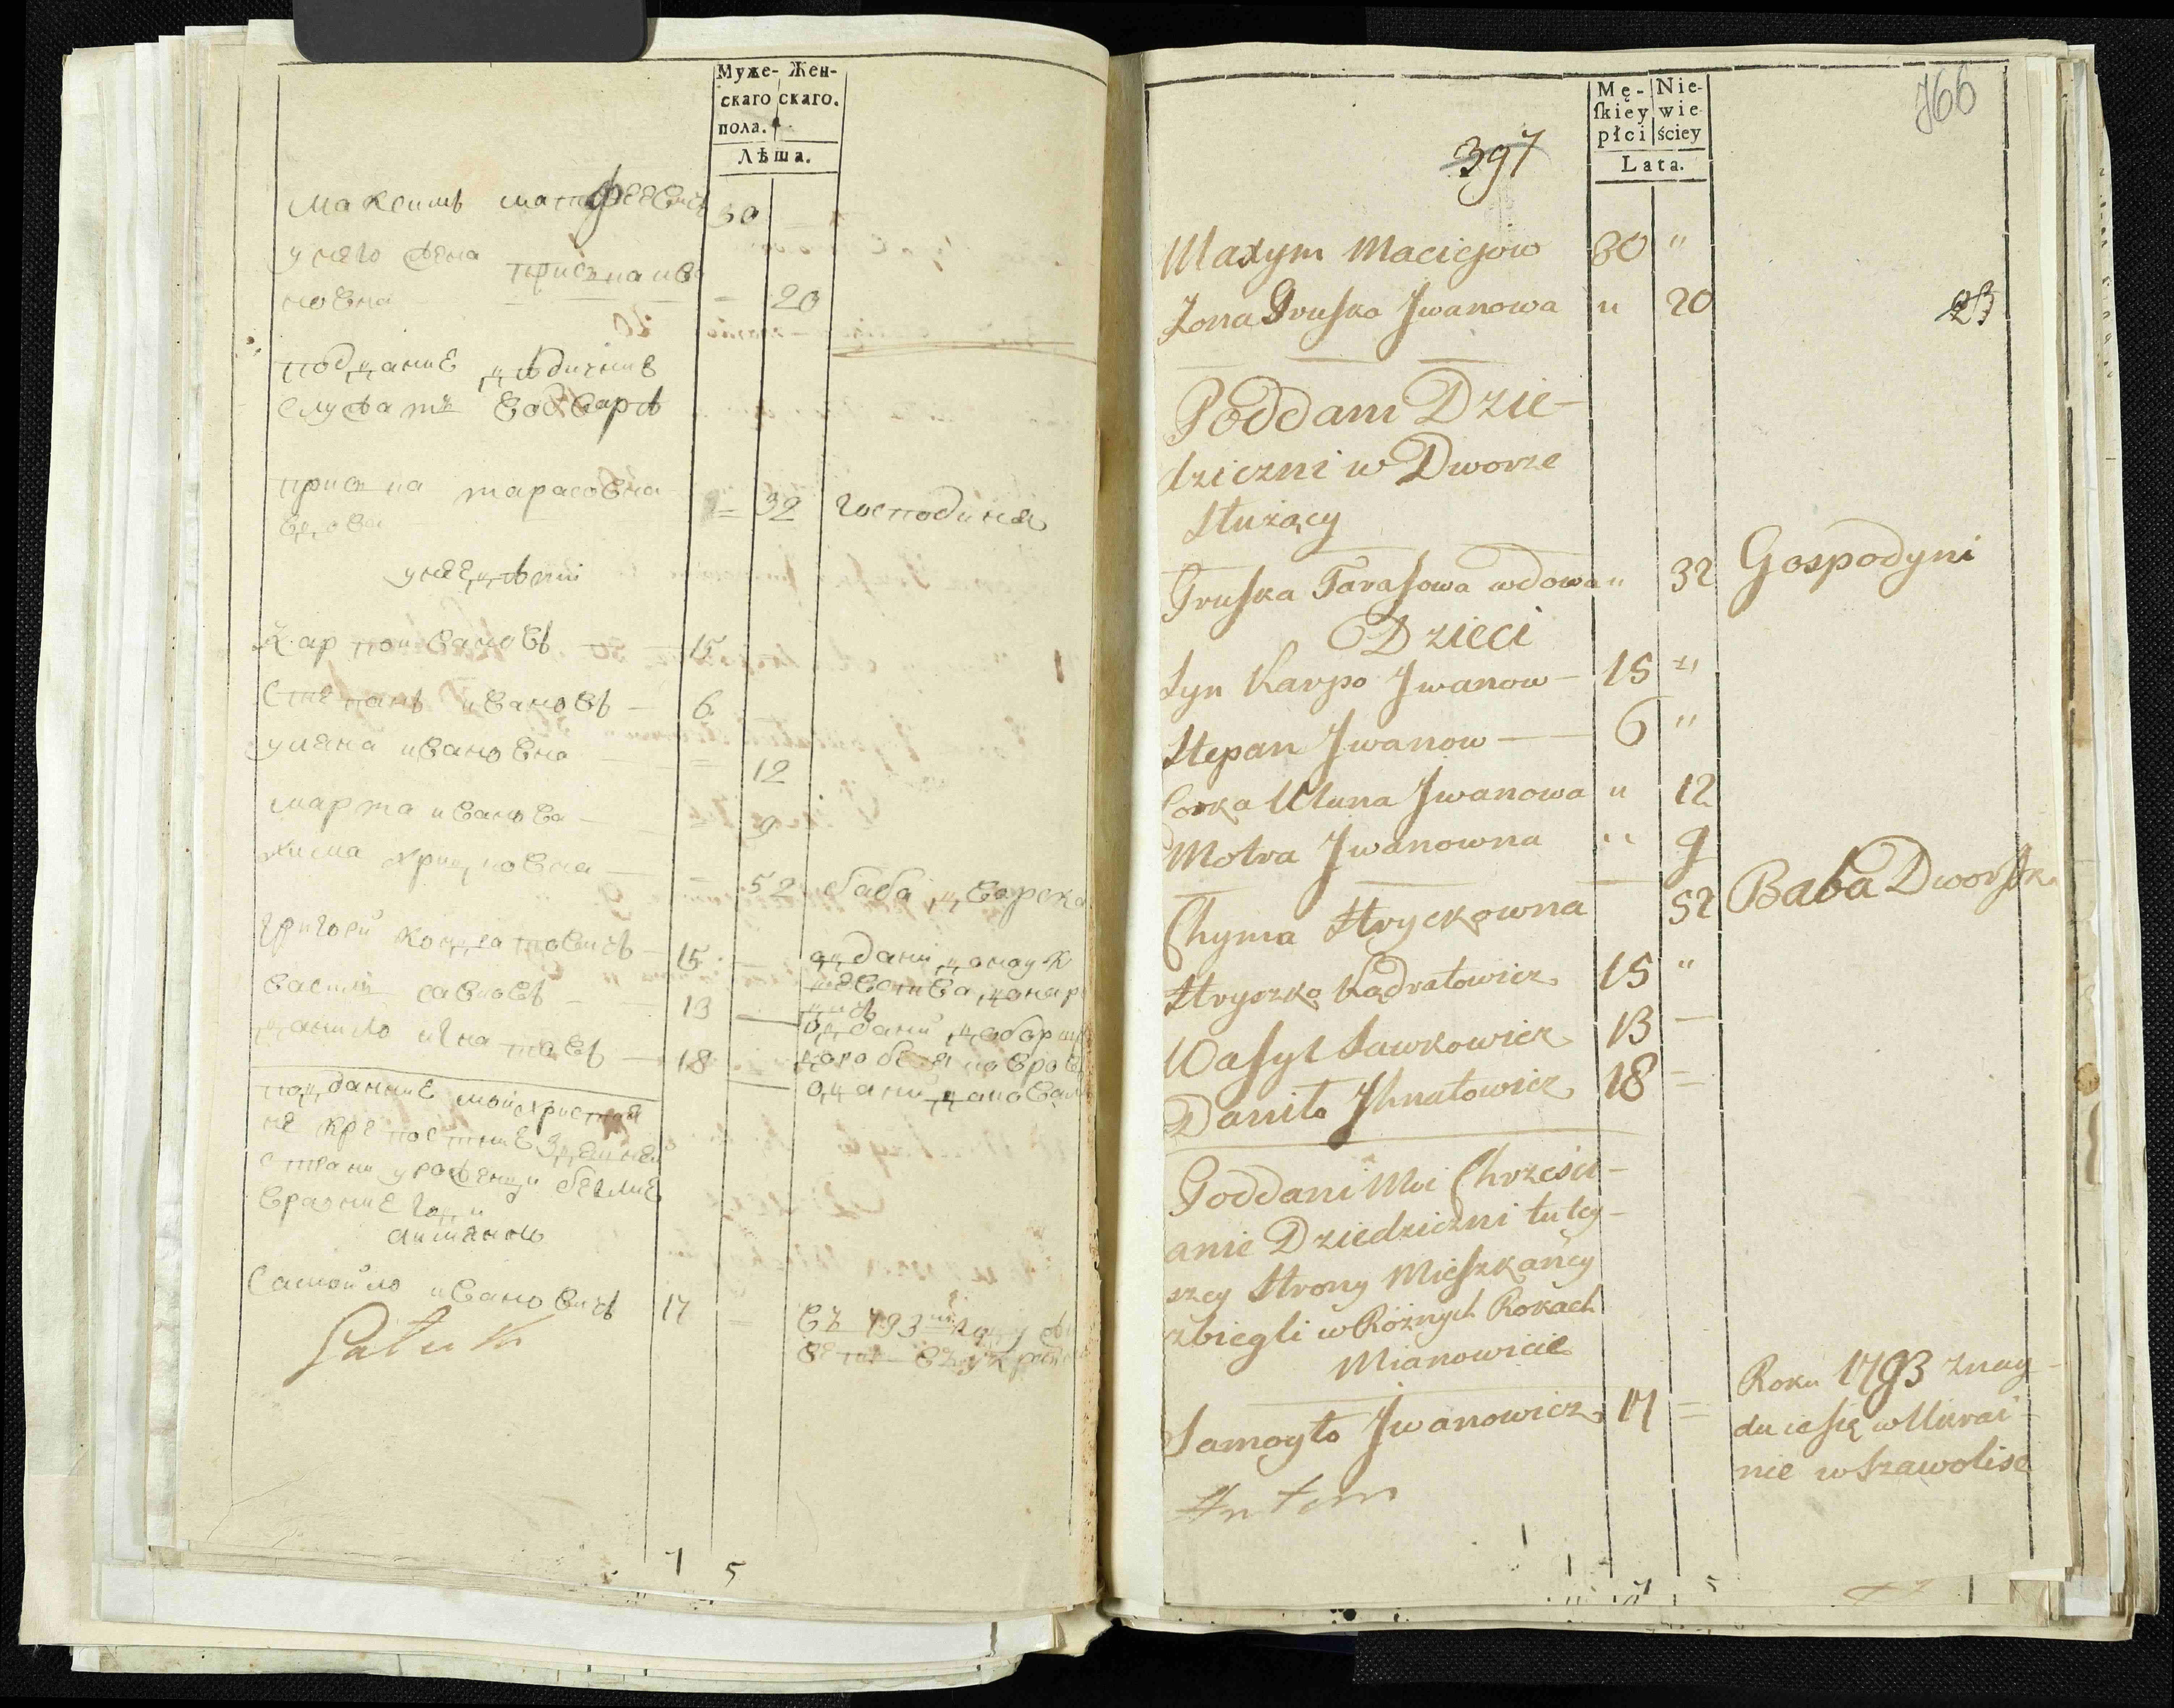 Муже- Жен-
скаго скаго.
пола.
Лѣта.
Максимъ матфеевичъ 30
у него жена присъка ива
новна - 20
поддание дѣдичние
служатъ водворѣ
приська тарасовна
вдова = 32 господиня
у нее дѣти
Карпо ивановъ 15
Степанъ ивановъ 6
уляна ивановна = 12
марта иванова = 9
химa хрицковна = 52 баба дворска
григорий кондратовичъ 15
василь савковъ 13
данило игнатовъ 18
подданние мои христия
не крепостние здешней
страни уроженци беглие
вразние годи
аименно
Самойло ивановичъ 17 =
397
766
Mę- Nie-
skiey wie-
płci ściey
Lata.
Maxym Maciejow 30 "
Żona Pruska Jwanowa " 20
23
Poddani Dzie-
dziczni w Dworze
Służący
Pruska Tarasowa wdowa " 32 Gospodyni
Dzieci
Syn Karpo Jwanow — 15 "
Stepan Jwanow — 6 "
Corka Ulana Jwanowa " 12
Motra Jwanowna " 9
Chyma Hryckowna 52 Baba Dworska
Hryszko Kądratowicz 15 "
Wasyl Sawkowicz 13 —
Daniło Jhnatowicz 18 =
Poddani Moi Chrześci-
anie Dziedziczni tutey-
szey Strony Mieszkańcy
zbiegli w Różnych Rokach
Mianowicie
Samoyło Jwanowicz 17 =
Roku 1793 znay-
duie się w Ukrai-
nie w Szawolise
7 5
7 5